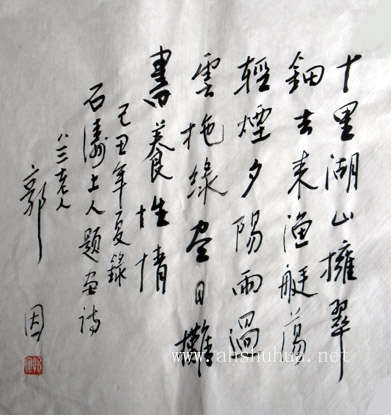 十里湖山擁翠
鈿去来漁艇蕩
輕煙夕陽雨過
雲拖綠盡日攤
書養性情
己丑年夏錄
石濤上人題畫詩
八三老人
郭因
www.ahshuhua.net